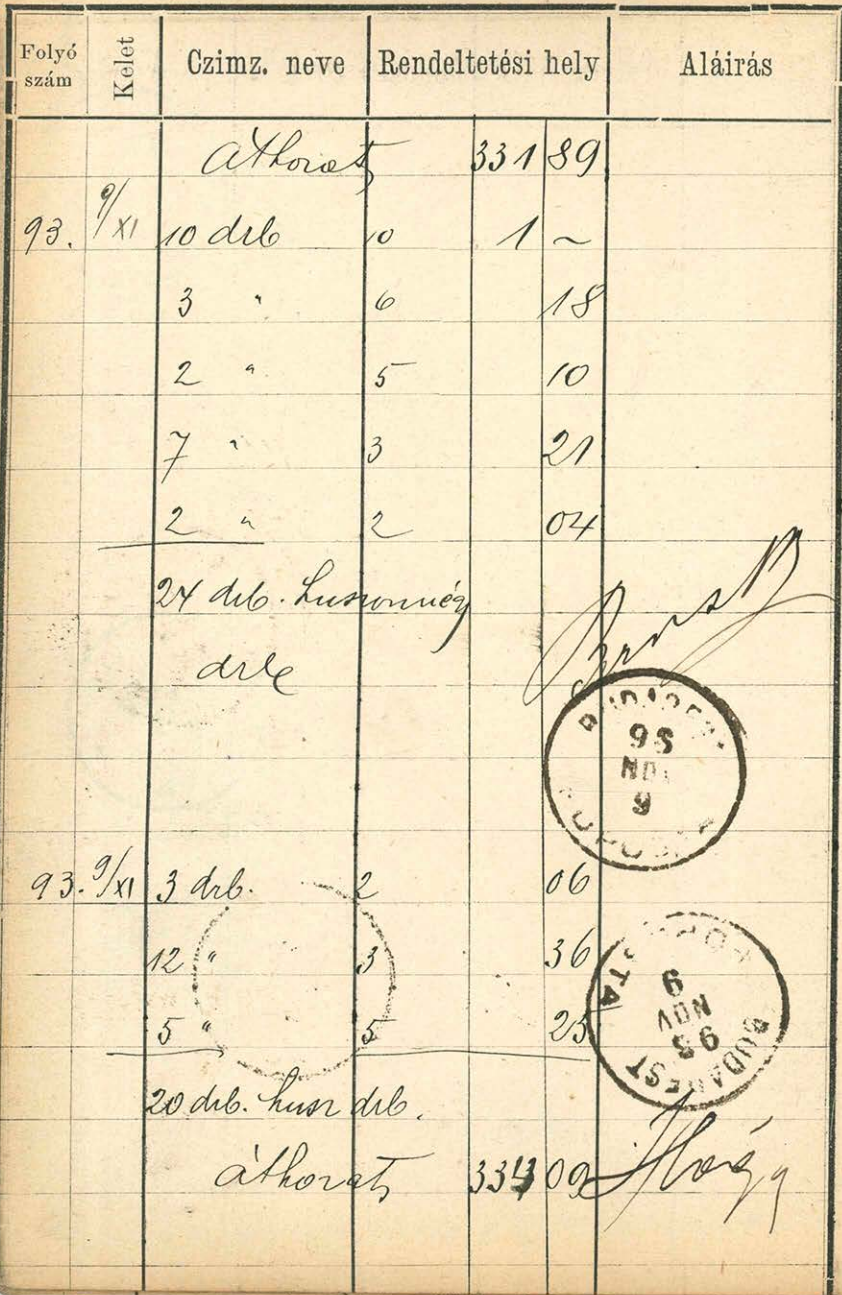 Folyó szám Kelet Czimz. neve Rendeltetési hely Aláirás
Áthozat 331 89
93. 9/XI 10 drb 10 1 ~
3 " 6 18
2 " 5 10
7 " 3 21
2 " 2 04
24 drb. huszonnégy
drb
BUDAPEST
93
NOV
9
93. 9/XI 3 drb. 2 06
12 " 3 36
5 " 5 25
FŐPOSTA
9
NOV
93
BUDAPEST
20 drb. husz drb.
áthozat 09